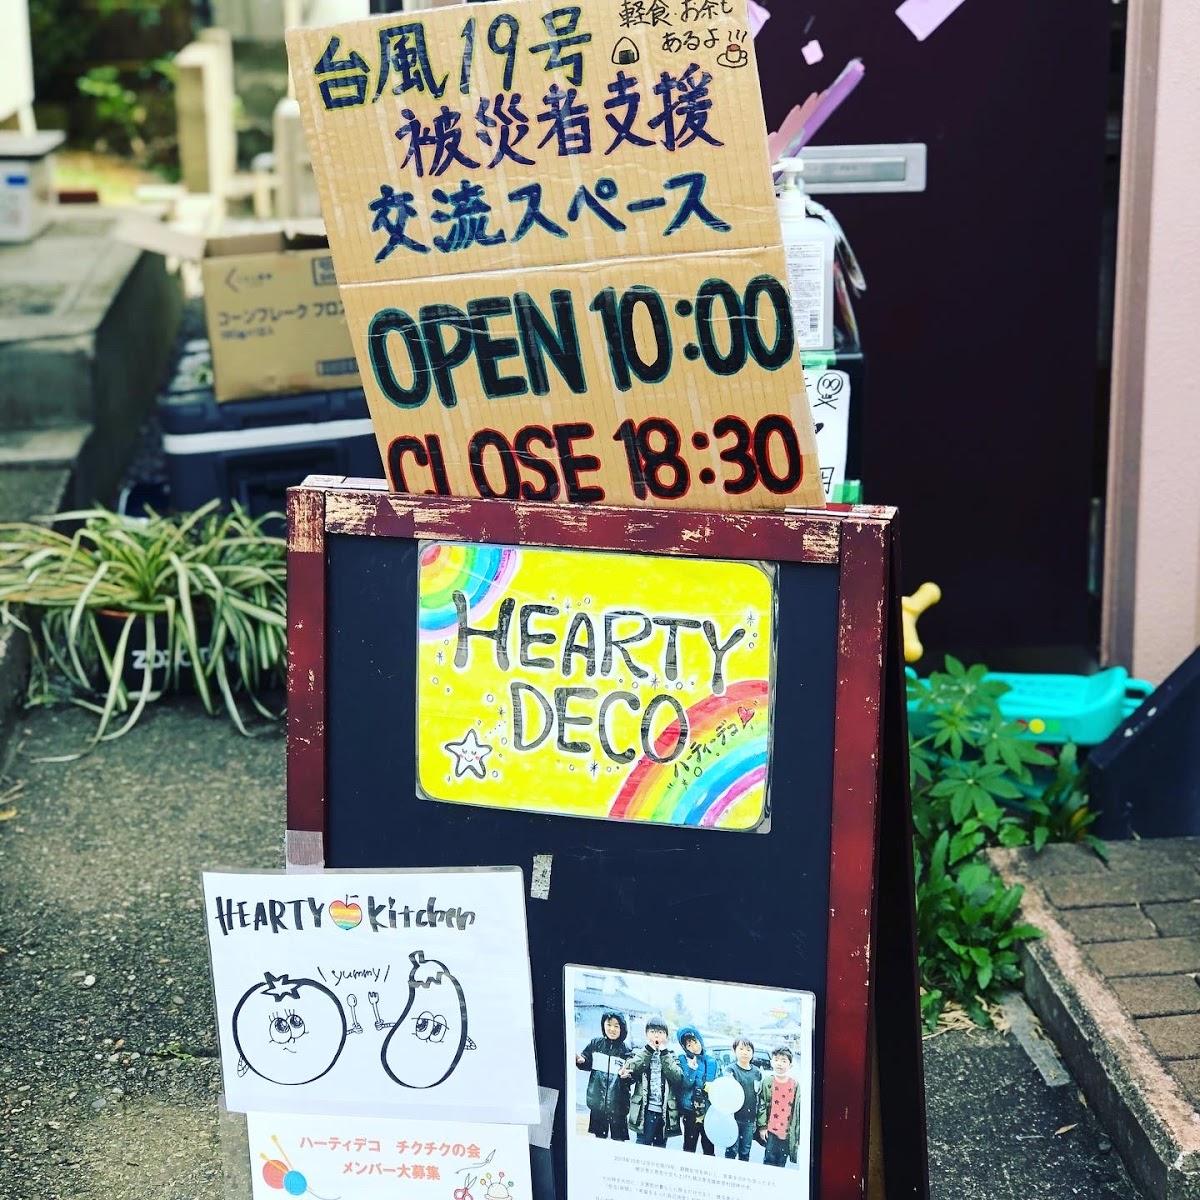 軽食・お茶も
あるよ
台風19号
被災者支援
交流スペース
OPEN 10:00
CLOSE 18:30
コーンフレーク フロス
HEARTY
DECO
ハーティーデコ
HEARTY Kitchen
yummy
ハーティデコ チクチクの会
メンバー大募集